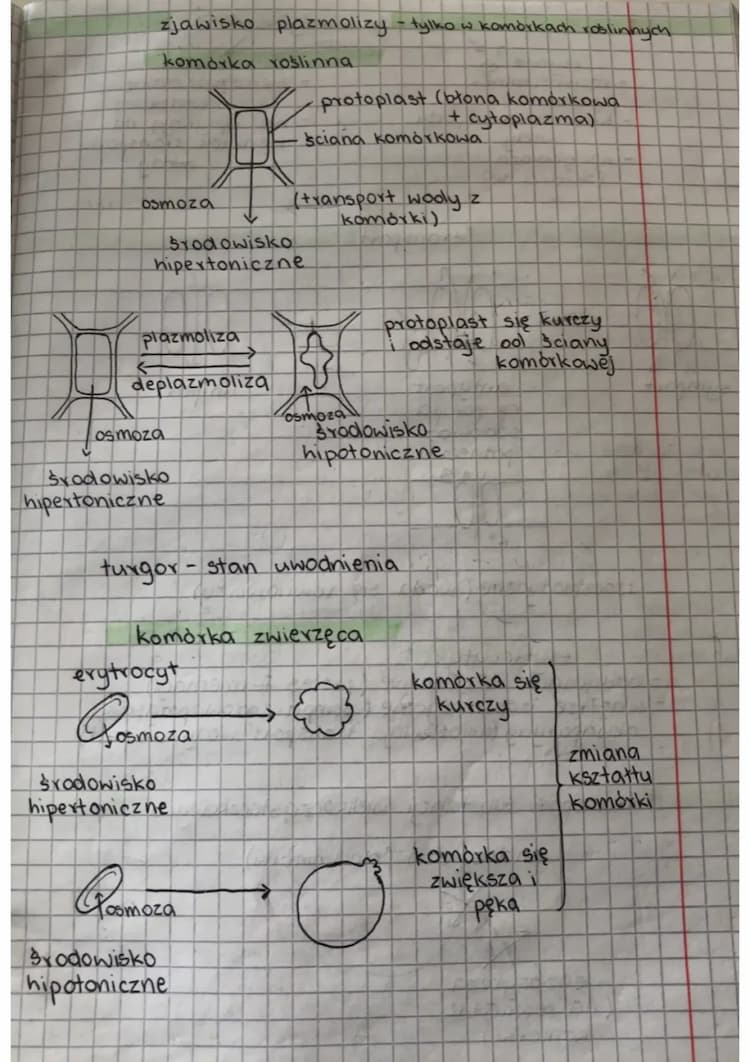 zjawisko plazmolizy - tylko w komórkach roślinnych
komórka roślinna
protoplast (błona komórkowa
+ cytoplazma)
ściana komórkowa
osmoza
(transport wody z
komórki)
środowisko
hipertoniczne
plazmoliza
deplazmoliza
protoplast się kurczy
i odstaje od ściany
komórkowej
osmoza
środowisko
hipertoniczne
osmoza
środowisko
hipotoniczne
turgor - stan uwodnienia
komórka zwierzęca
erytrocyt
osmoza
komórka się
kurczy
środowisko
hipertoniczne
zmiana
kształtu
komórki
osmoza
komórka się
zwiększa i
pęka
środowisko
hipotoniczne